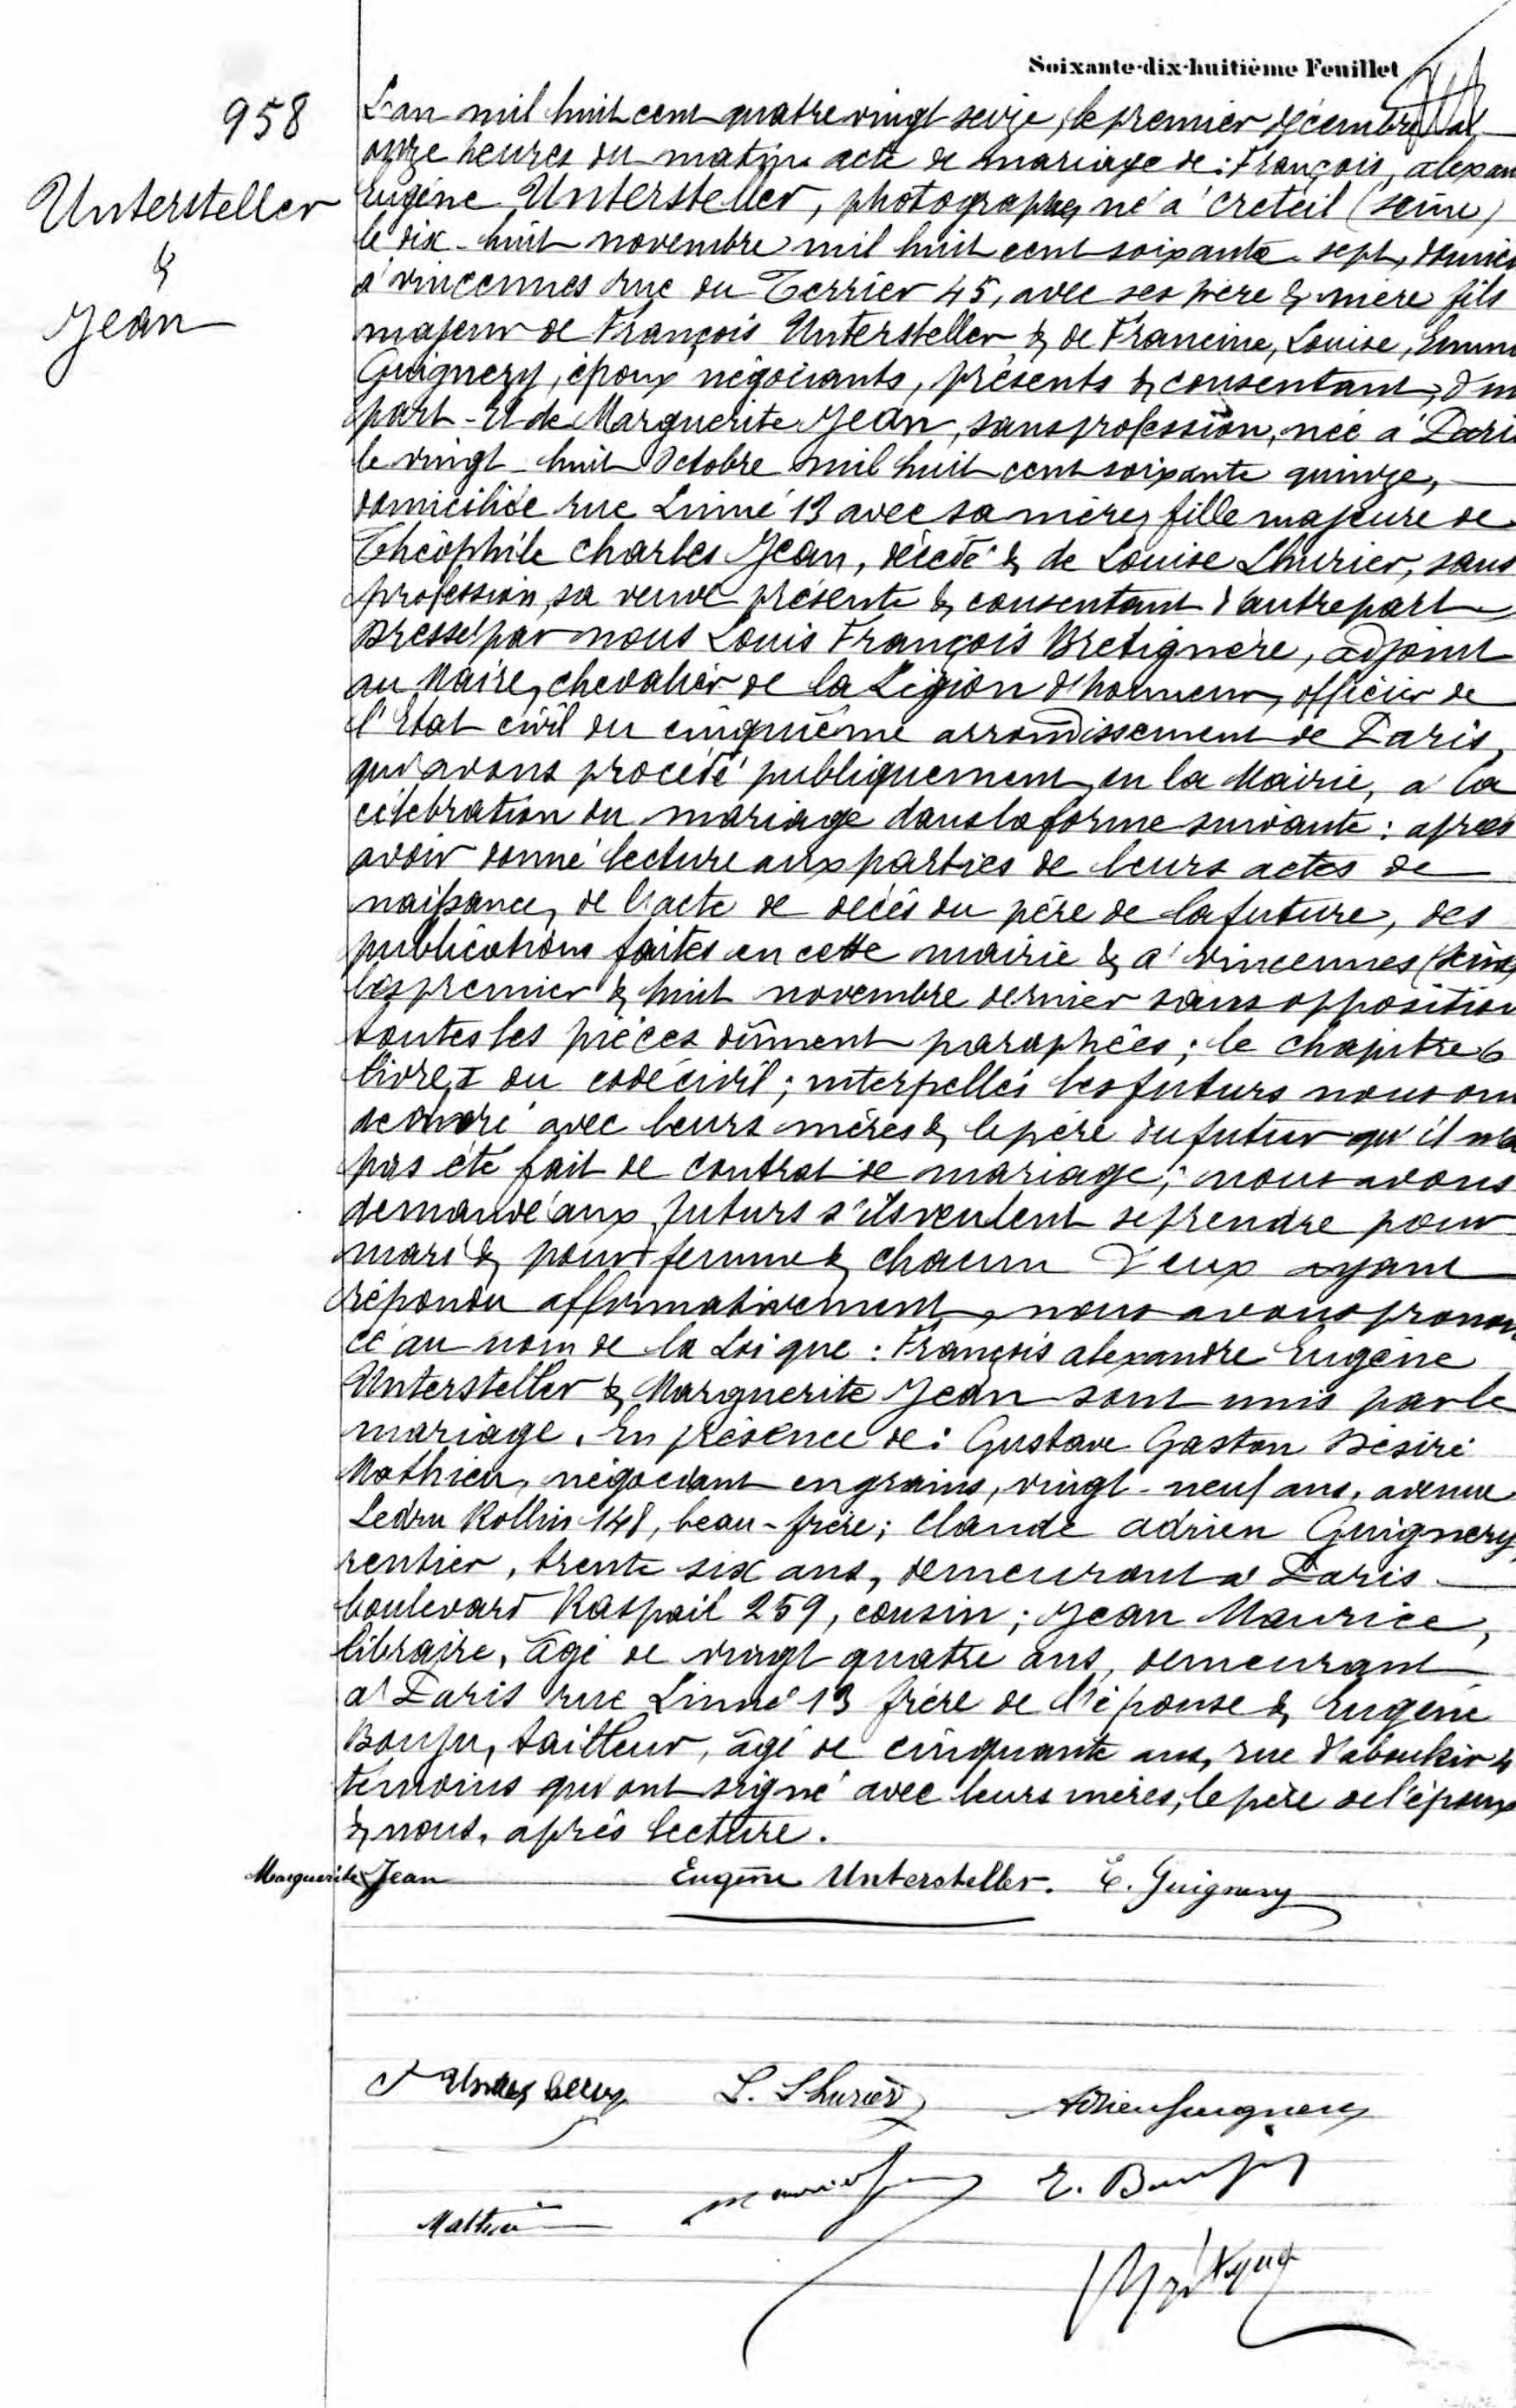 Soixante-dix-huitième Feuillet
958
Untersteller
&
Jean
L'an mil huit cent quatre vingt seize, le premier décembre à
onze heures du matin acte de mariage de : François, alexan
Eugène Untersteller, photographe, né à Créteil (Seine)
le dix-huit novembre mil huit cent soixante sept, domici
à Vincennes rue du Terrier 45, avec ses père & mère fils
majeur de François Untersteller & de Francine, Louise, Emm
Guignery, époux négociants, présents & consentant, d'un
part - Et de Marguerite Jean, sans profession, née à Pari
le vingt-huit Octobre mil huit cent soixante quinze,
domiciliée rue Linné 13 avec sa mère, fille majeure de
Théophile Charles Jean, décédé & de Louise Lhurier, sans
profession, sa veuve présente & consentant d'autre part
Dressé par nous Louis François Bretignère, adjoint
au Maire, chevalier de la Légion d'honneur, officier de
l'Etat civil du cinquième arrondissement de Paris,
qui avons procédé publiquement en la Mairie, à la
célébration du mariage dans la forme suivante : après
avoir donné lecture aux parties de leurs actes de
naissance, de l'acte de décès du père de la future, des
publications faites en cette mairie & à Vincennes (Seine)
les premier & huit novembre dernier sans opposition
toutes les pièces dûment paraphées ; le chapitre 6
livre I du code civil ; interpellés les futurs nous on
déclaré avec leurs mères & le père du futur qu'il n'a
pas été fait de contrat de mariage ; nous avons
demandé aux futurs s'ils veulent se prendre pour
mari & pour femme & chacun d'eux ayant
répondu affirmativement, nous avons pronon
cé au nom de la Loi que : François alexandre Eugène
Untersteller & Marguerite Jean sont unis par le
mariage. En présence de : Gustave Gaston Désiré
Mathieu, négociant en grains, vingt-neuf ans, avenue
Ledru Rollin 148, beau-frère ; Claude adrien Guignery,
rentier, trente six ans, demeurant à Paris
boulevard Raspail 259, cousin ; Jean Maurice,
libraire, âgé de vingt quatre ans, demeurant
à Paris rue Linné 13 frère de l'épouse & Eugène
Bouju, tailleur, âgé de cinquante ans, rue d'aboukir 4
témoins qui ont signé avec leurs mères, le père de l'époux
& nous, après lecture.
Marguerite Jean Eugène Untersteller. E. Guignery
Untersteller L. Lhurier Adrien Guignery
Mathieu E. Bouju